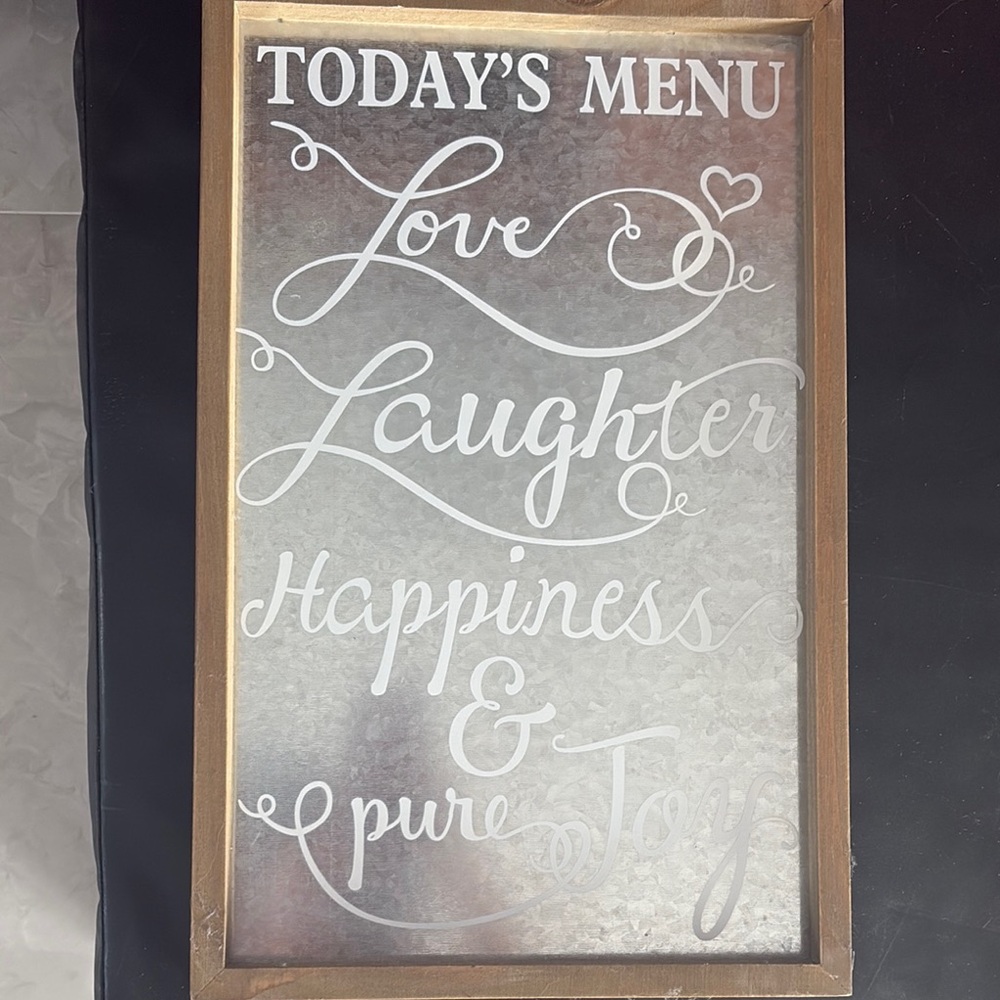 TODAY'S MENU
Love
Laughter
Happiness
&
pure Joy